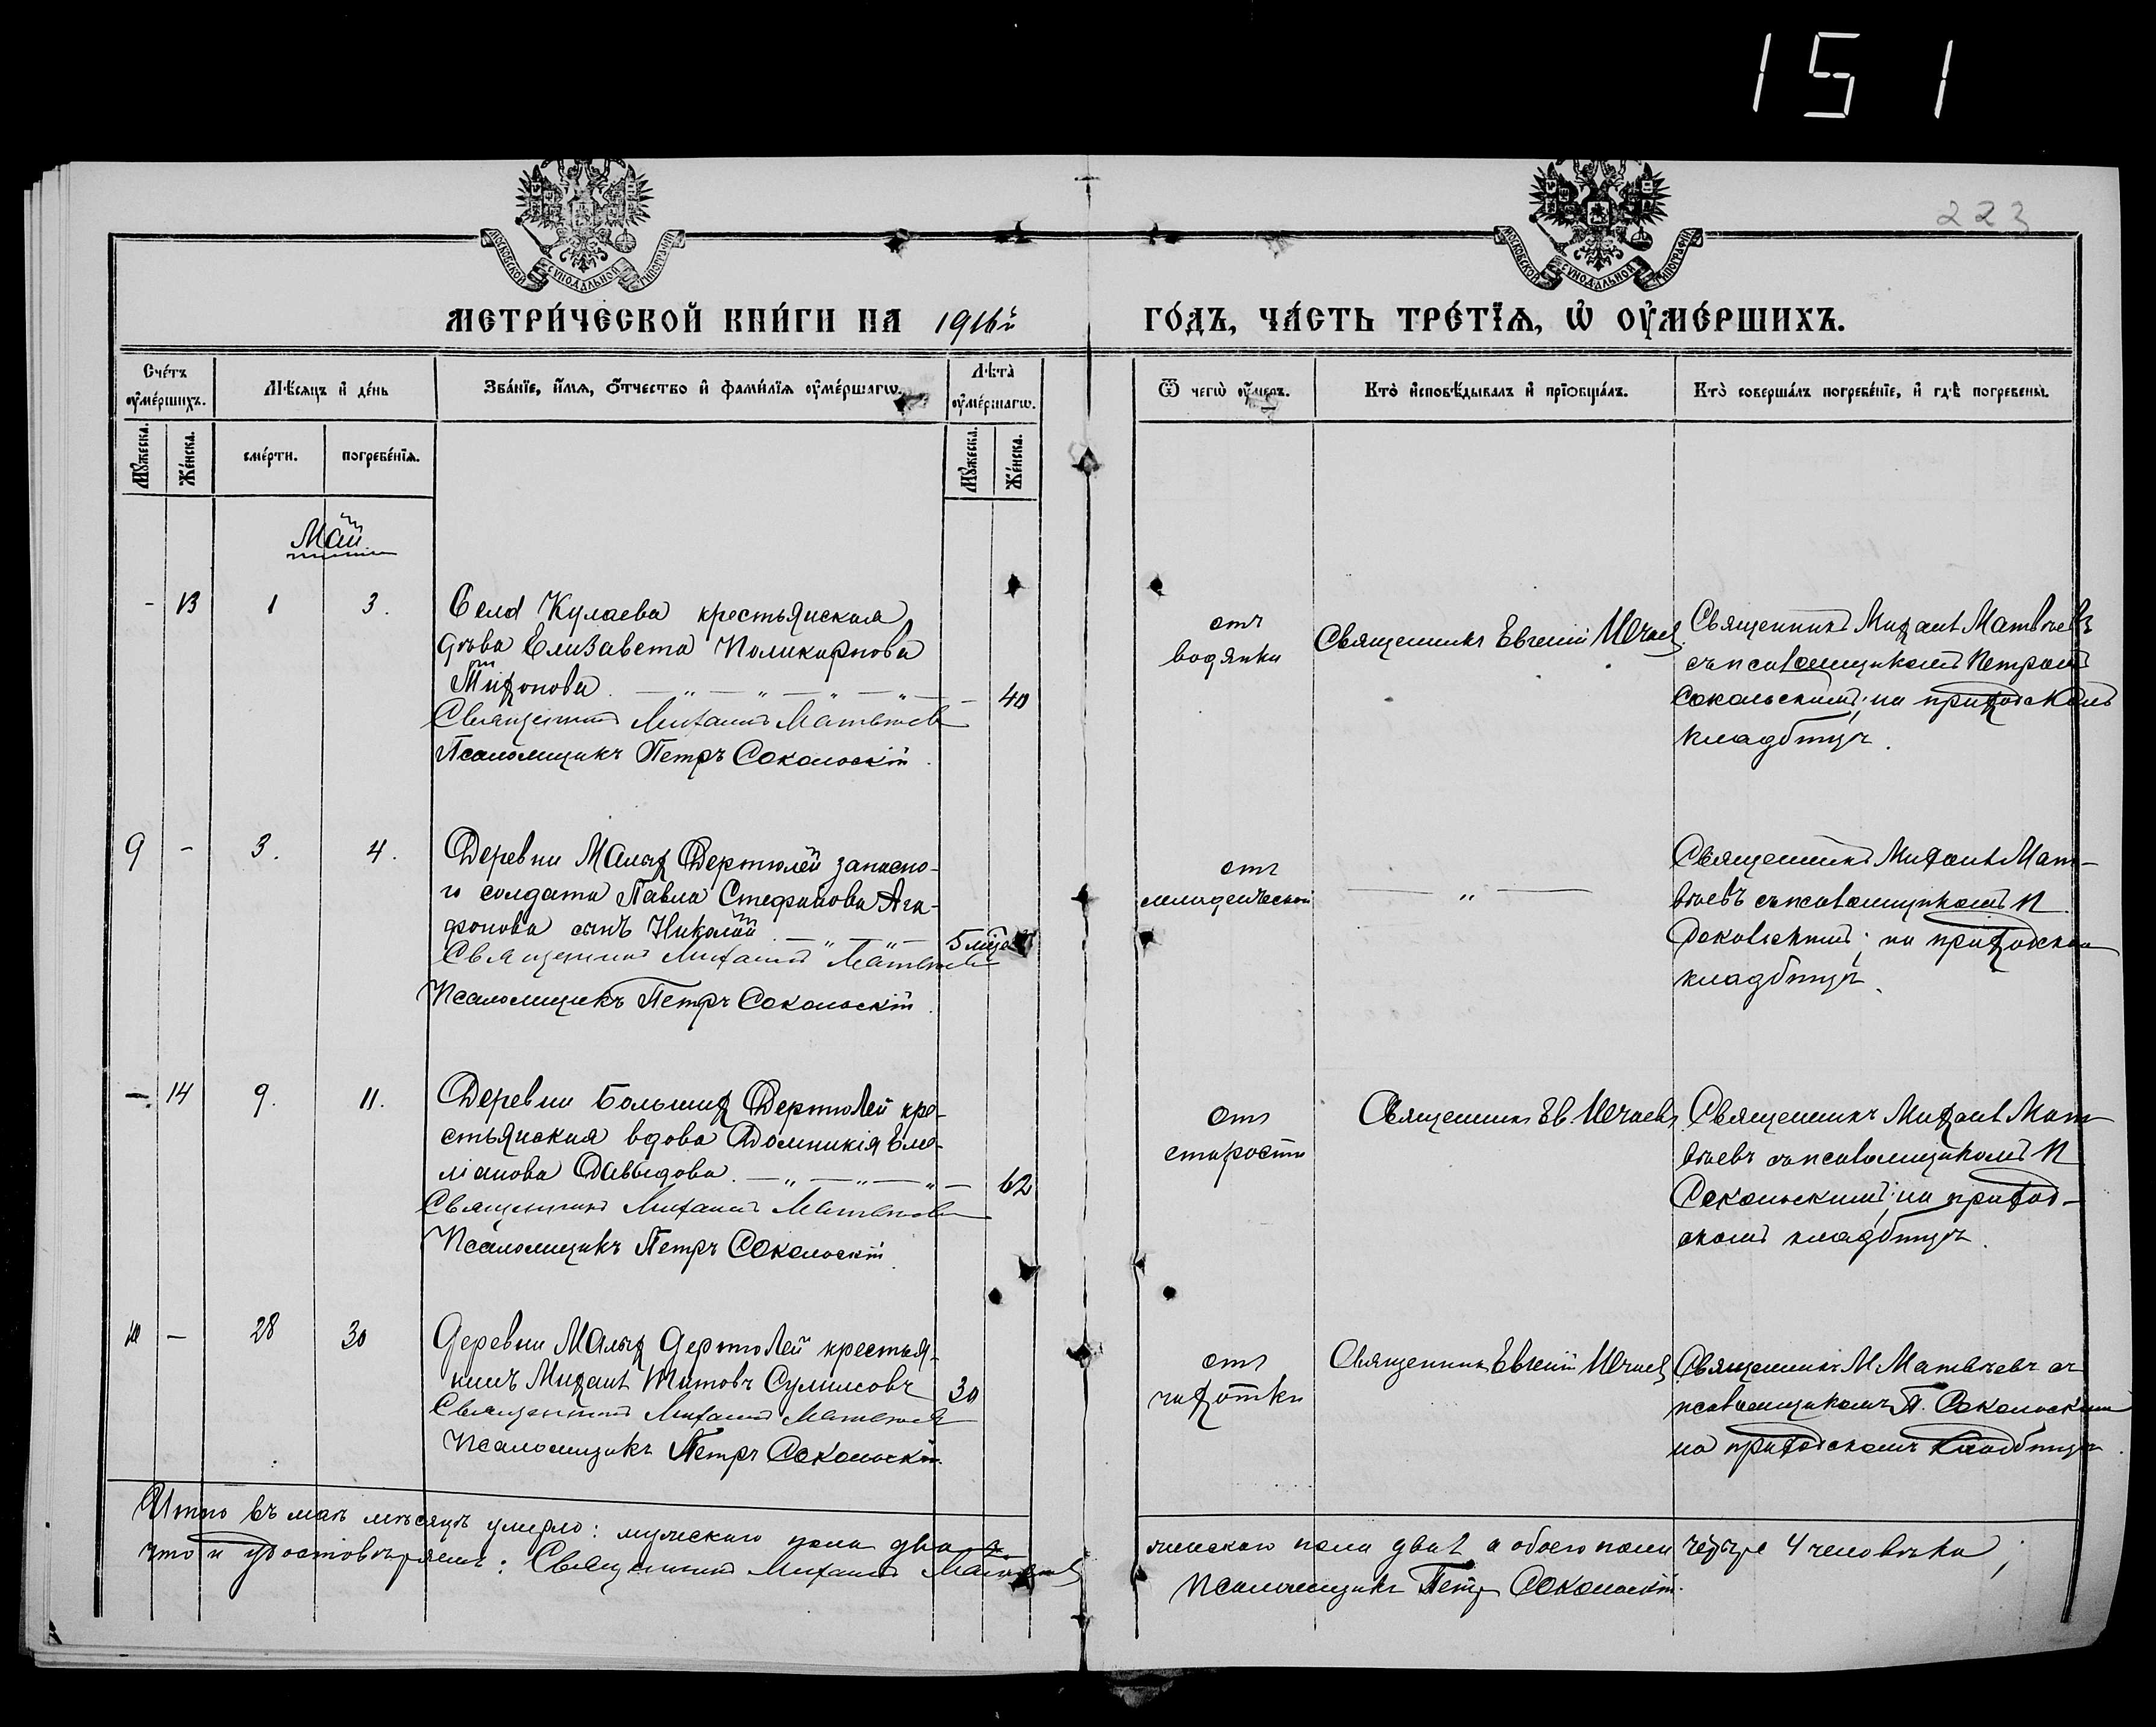 151
223
МОСКОВСКОЙ СѴНОДАЛЬНОЙ ТИПОГРАФІИ
МОСКОВСКОЙ СѴНОДАЛЬНОЙ ТИПОГРАФІИ
МЕТРИ́ЧЕСКОЙ КНИ́ГИ НА 1916й ГО́ДЪ, ЧА́СТЬ ТРЕ́ТЇѦ, Ѡ ОУ҆МЕ́РШИХЪ.
Сче́тъ оу҆ме́ршихъ.
Мѣсяцъ и҆ де́нь
Зва́нїе, и҆́мя, ѻ҆́тчество и҆ фами́лїя оу҆ме́ршагѡ.
Лѣта̀ оу҆ме́ршагѡ.
Ѿ чегѡ̀ оу҆́меръ.
Кто̀ и҆сповѣ́дывалъ и҆ прїѡбща́лъ.
Кто̀ соверша́лъ погребе́нїе, и҆ гдѣ̀ погребены̀.
Мꙋ́жеска.
Же́нска.
сме́рти.
погребе́нїя.
Мꙋ́жеска.
Же́нска.
Май
- 13 1 3.
Села Кулаева крестьянская
дѣва Елизавета Поликарпова
Тихонова 40
Священникъ Михаилъ Матвѣевъ
Псаломщикъ Петръ Сокольскій
отъ
водянки
Священникъ Евгеній Ивчаев
Священникъ Михаилъ Матвѣевъ
съ псаломщикомъ Петромъ
Сокольскимъ; на приходскомъ
кладбищѣ.
9 - 3. 4.
Деревни Малых Дертюлей запасно-
го солдата Павла Стефанова Ага-
фонова сынъ Николай 5 мѣс
Священникъ Михаилъ Матвѣевъ
Псаломщикъ Петръ Сокольскій
отъ
младенческой
— „ —
Священникъ Михаилъ Мат-
вѣевъ съ псаломщикомъ П.
Сокольскимъ; на приходском
кладбищѣ.
- 14 9. 11.
Деревни Больших Дертюлей кре-
стьянская вдова Домникія Еме-
ліанова Давыдова. 62
Священникъ Михаилъ Матвѣевъ
Псаломщикъ Петръ Сокольскій
отъ
старости
Священникъ Ев. Ивчаевъ
Священникъ Михаилъ Мат
вѣевъ съ псаломщикомъ П
Сокольскимъ; на приход-
скомъ кладбищѣ.
10 - 28 30
Деревни Малых Дертюлей крестья-
нинъ Михаилъ Титовъ Сулимовъ 30
Священникъ Михаилъ Матвѣевъ
Псаломщикъ Петръ Сокольскій
отъ
чахотки
Священникъ Евгеній Ивчаев
Священникъ М Матвѣевъ съ
псаломщикомъ П. Сокольским
на приходскомъ кладбищѣ
Итого въ маѣ мѣсяцѣ умерло: мужскаго пола два 2
женскаго пола два 2 а обоего пола четыре 4 человѣка;
что и удостовѣряемъ: Священникъ Михаилъ Матвѣевъ
Псаломщикъ Петръ Сокольскій.